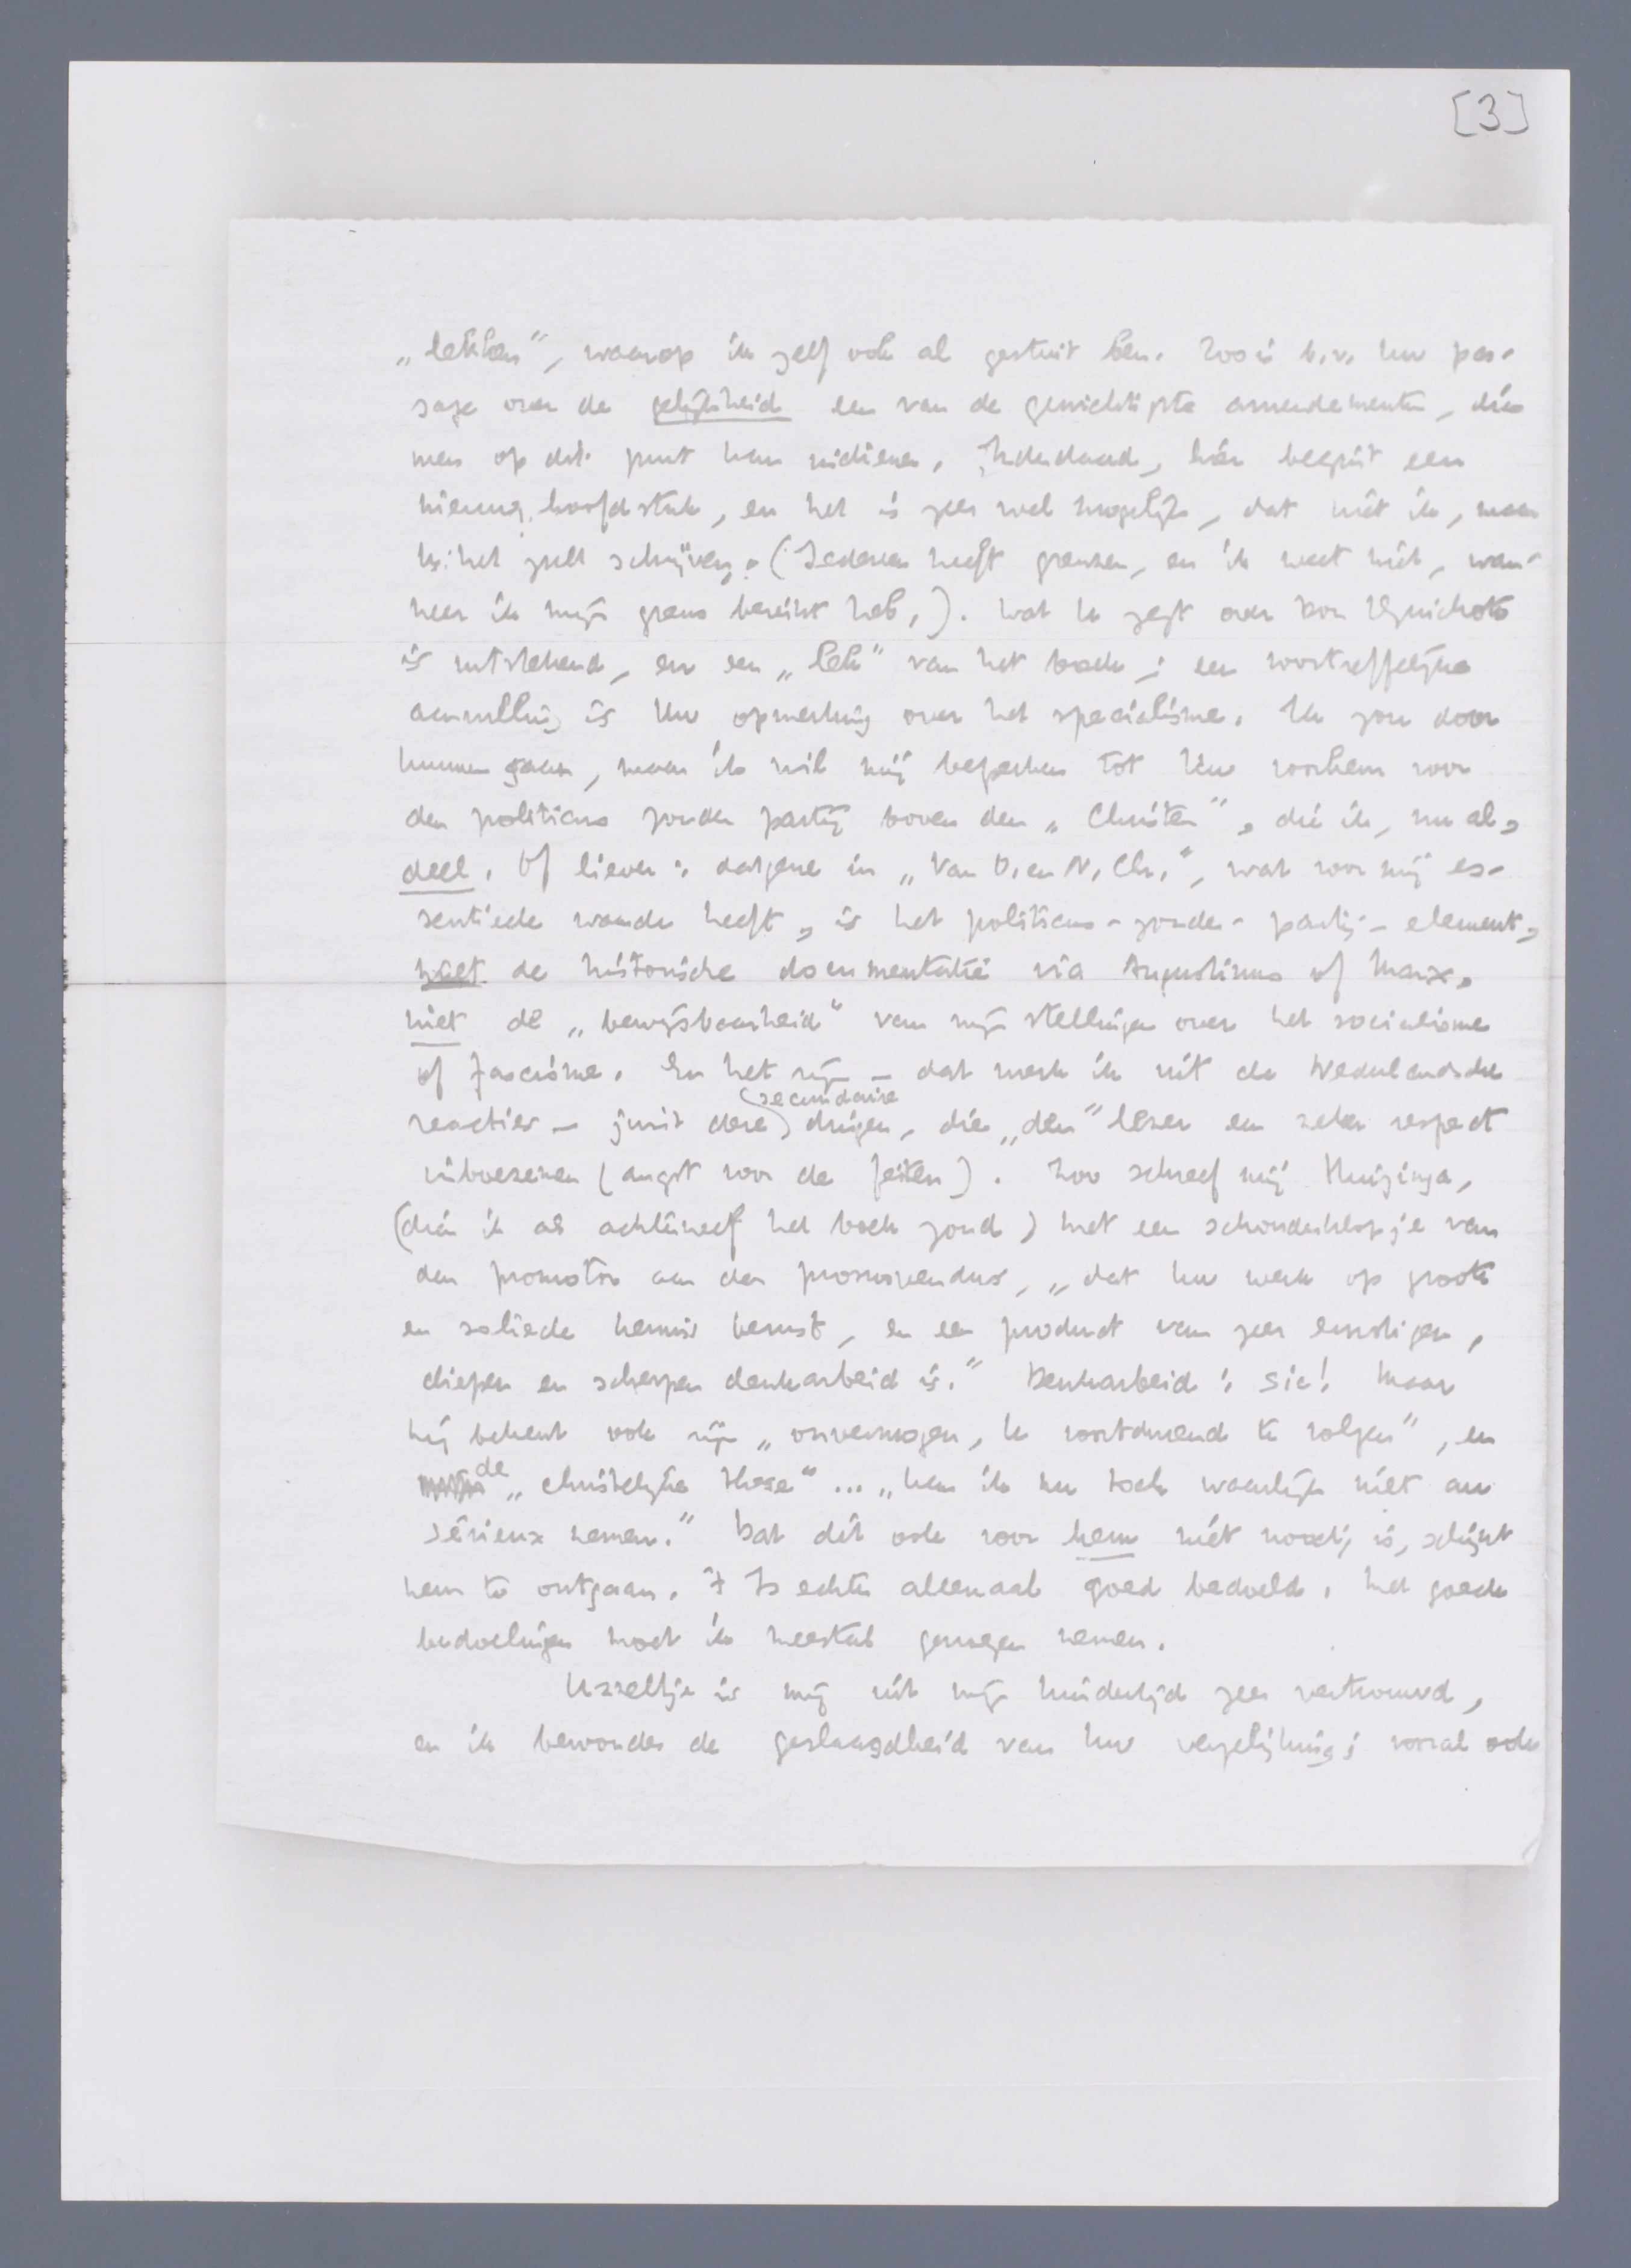 [3]
„lekken", waarop ik zelf ook al gestuit ben. Zoo is b.v. Uw pas-
sage over de gelijkheid een van de gewichtigste amendementen, die
men op dit punt kan indienen. Inderdaad, hier begint een
nieuw hoofdstuk, en het is zeer wel mogelijk, dat niet ik, maar
U het zult schrijven. (Iedereen heeft grenzen, en ik weet niet, wan-
neer ik mijn grens bereikt heb.). Wat U zegt over Don Quichote
is uitstekend, en een „lek" van het boek; een voortreffelijke
aanvulling is Uw opmerking over het specialisme. Ik zou door
kunnen gaan, maar ik wil mij beperken tot Uw voorkeur voor
den politicus zonder partij boven den „Christen", die ik, nu al,
deel. Of liever: datgene in „Van O. en N. Chr.", wat voor mij es-
sentieele waarde heeft, is het politicus-zonder-partij-element,
niet de historische documentatie via Augustinus of Marx,
niet de „bewijsbaarheid" van mijn stellingen over het socialisme
of fascisme. En het zijn – dat merk ik uit de Nederlandsche
reacties – juist deze secundaire dingen, die „den" lezer een zeker respect
inboezemen (angst voor de feiten). Zoo schreef mij Huizinga,
(dien ik als achterneef het boek zond) met een schouderklopje van
den promotor aan den promovendus, „dat Uw werk op groote
en soliede kennis berust, en een product van zeer ernstigen,
diepen en scherpen denkarbeid is." Denkarbeid: sic! Maar
hij bekent ook zijn „onvermogen, U voortdurend te volgen", en
de „christelijke these"... „kan ik nu toch waarlijk niet au
sérieux nemen." Dat dit ook voor hem niet noodig is, schijnt
hem te ontgaan. 't Is echter allemaal goed bedoeld. Met goede
bedoelingen moet ik meestal genoegen nemen.
IJsseltje is mij uit mijn kindertijd zeer vertrouwd,
en ik bewonder de geslaagdheid van Uw vergelijking; vooral ook